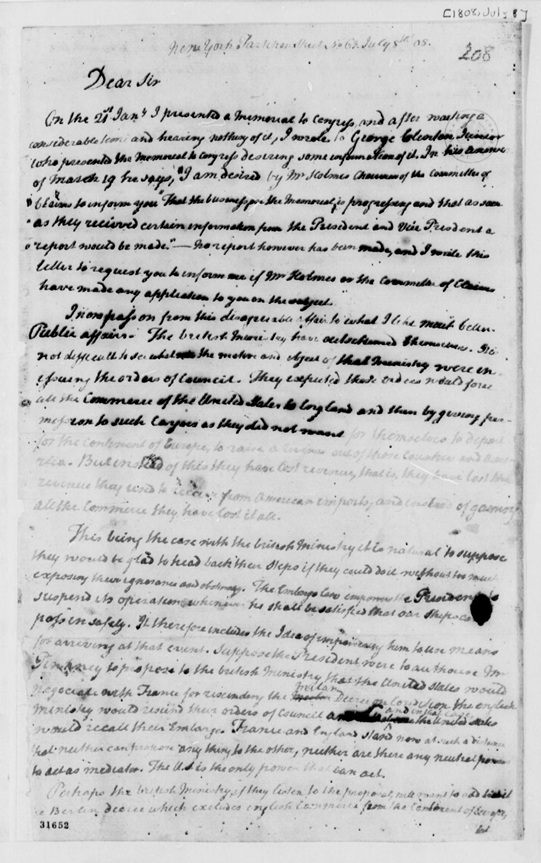 [1808, July 8]
New York Partition Street No 63 July 8th 08.
208
Dear Sir
On the 21st Jany I presented a Memorial to Congress, and after waiting a
considerable time and hearing nothing of it, I wrote to George Clinton Junior
who presented the Memorial to Congress desiring some information of it. In his answer
of March 19 he says, "I am desired by Mr Holmes Chairman of the Committee of
" Claims to inform you That the business of the Memorial is progressing and that as soon
" as they recieved certain information from the President and Vice President a
" report would be made." — No report however has been made, and I write this
letter to request you to inform me if Mr Holmes or the Committee of Claims
have made any application to you on the subject.
I now pass on from this disagreeable affair to what I like much better
Public affairs. The british Ministry have outschemed themselves. It is
not difficult to see what the motive and object of that Ministry were in
issuing the orders of Council. They expected those orders would force
all the Commerce of the United States to England and then by giving per-
mission to such cargoes as they did not want for themselves to depart
for the Continent of Europe, to raise a revenue out of those Countries and Ame-
rica. But instead of this they have lost revenue, that is, they have lost the
revenue they used to receive from American imports, and instead of gaining
all the Commerce they have lost it all.
This being the case with the british Ministry it is natural to suppose
they would be glad to tread back their steps if they could do it without too much
exposing their ignorance and obstinacy. The Embargo law empowers the President to
suspend its operation whenever he shall be satisfied that our ships can
pass in safety. It therefore includes the Idea of empowering him to use means
for arriving at that event. Suppose the President were to authorise Mr
Pinckney to propose to the british Ministry that the United States would
negociate with France for rescinding the Milan Decree on Condition the english
Ministry would rescind their orders of Council and in that case the United States
would recall their Embargo. France and England stand now at such a distance
that neither can propose any thing to the other, neither are there any neutral powers
to act as mediator. The U.S. is the only power that can act.
Perhaps the british Ministry, if they listen to the proposal, will want to add to it
the Berlin decree which excludes english Commerce from the Continent of Europe,
but
31652